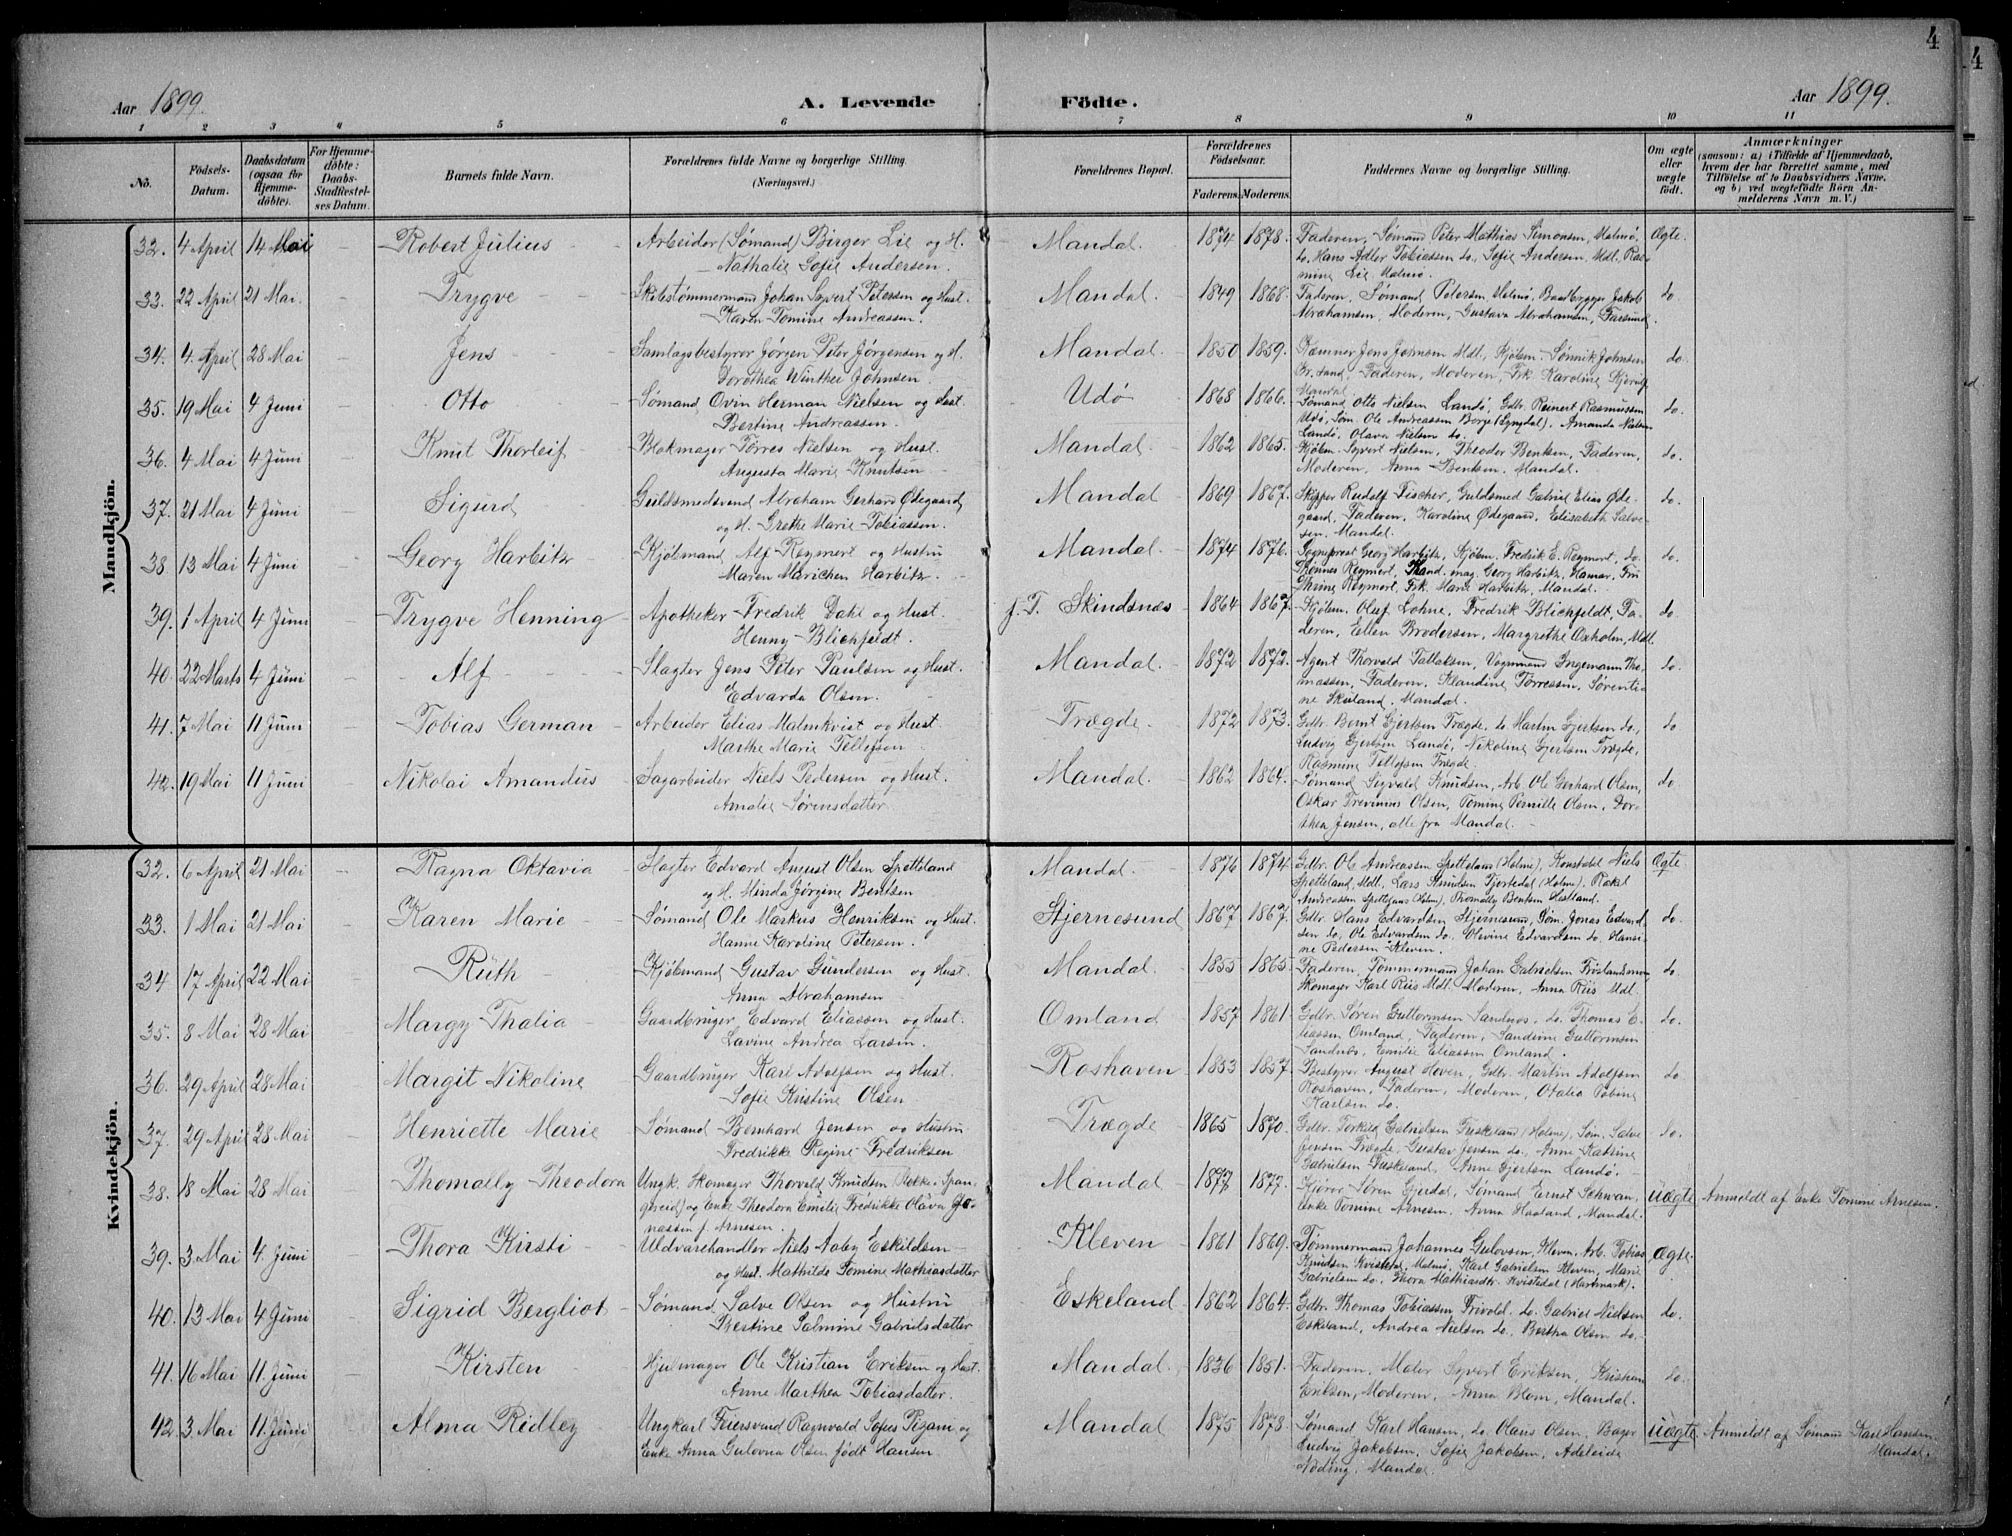 4
4
Aar 1899.
A. Levende Födte.
Aar 1899.
1 2 3 4 5 6 7 8 9 10 11
No.
Födsels-Datum.
Daabsdatum (ogsaa for Hjemmedöbte).
For Hjemmedöbte: Daabs-Stadfestelses Datum.
Barnets fulde Navn.
Forældrenes fulde Navne og borgerlige Stilling. (Næringsvei.)
Forældrenes Bopæl.
Forældrenes Födselsaar.
Faderens. Moderens.
Faddernes Navne og borgerlige Stilling.
Om ægte eller uægte født.
Anmærkninger
(saasom: a) i Tilfælde af Hjemmedaab, hvem der har forrettet samme, med Tilföielse af to Daabsvidners Navne, og b) ved uægtefödte Börn Anmelderens Navn m. V.)
Mandkjön.
32. 4 April 14 Mai Robert Julius Arbeider (Sømand) Birger Lie og H. Nathalie Sofie Andersen. Mandal. 1874 1878. Faderen, Sømand Peter Mathias Simonsen, Malmø, do. Hans Adler Tobiassen do., Sofie Andersen, Mdl. Rasmine Lie, Malmø. Ægte.
33. 22 April 21 Mai Trygve Skibstømmermand Johan Syvert Petersen og Hust. Karen Tomine Andreassen. Mandal. 1849 1868. Faderen, Sømand Petersen, Malmø, Baadbygger Jakob Abrahamsen, Moderen, Gustava Abrahamsen, Farsund. do
34. 4. April 28 Mai Jens Samlagsbestyrer Jørgen Peter Jørgensen og H. Dorothea Winther Johnsen. Mandal. 1850 1859. Kæmner Jens Johnsen Mdl., Kjøbm. Sønnik Johnsen Kr.sand, Faderen, Moderen, Frk. Karoline Kjerulf Mandal do.
35. 19 Mai 4 Juni Otto Sømand Ovin Herman Nielsen og Hust. Bertine Andreassen. Udø 1868 1866. Sømand Otto Nielsen Landø, Gdbr. Reinert Rasmussen Udø, Søm. Ole Andreassen Borge (Lyngdal). Amanda Nielsen Landø, Olava Nielsen do. do.
36. 4 Mai 4 Juni Knut Thorleif Blokmager Tørres Nielsen og Hust. Augusta Marie Knutsen Mandal. 1862 1865. Kjøbm. Syvert Nielsen, Theodor Bentsen, Faderen, Moderen, Anna Bentsen, Mandal. do.
37. 21 Mai 4 Juni Sigurd Guldsmedsvend Abraham Gerhard Ødegaard og H. Grethe Marie Tobiassen. Mandal 1869 1867. Skipper Rudolf Fischer, Guldsmed Gabriel Elias Ødegaard, Faderen, Karoline Ødegaard, Elisabeth Salvesen. Mandal. do.
38. 13 Mai 4 Juni Georg Harbitz Kjøbmand Alf Regnert og Hustru Maren Marichen Harbitz. Mandal. 1874 1876. Sogneprest Georg Harbitz, Kjøbm. Fredrik E. Regnert, do. Thønnes Regnert, Kand. mag. Georg Harbitz, Hamar, Fru Thrine Regnert, Frk. Marie Harbitz, Mandal. do.
39. 1 April 4 Juni Trygve Henning Apotheker Fredrik Dahl og Hust. Henny Blichfeldt. f. T. Skindsnæs 1864 1867. Kjøbm. Oluf Lohne, Fredrik Blichfeldt, Faderen, Ellen Brodersen, Margrethe Oxholm, Mdl. do.
40. 22 Marts 4 Juni Alf Slagter Jens Peter Paulsen og Hust. Edvarda Olsen. Mandal. 1872 1872. Agent Thorvald Tallaksen, Vognmand Ingemann Thomassen, Faderen, Klandine Tørressen, Sørentine Skuland. Mandal. do.
41. 7 Mai 11 Juni Tobias German Arbeider Elias Malmkvist og Hust. Marthe Marie Tellefsen Trægde. 1872 1873. Gdbr. Bernt Gjertsen Trægde, do Martin Gjertsen do., Ludvig Gjertsen Landø, Nikoline Gjertsen Trægde, Rasmine Tellefsen Trægde. do
42. 19 Mai 11 Juni Nikolai Amandus Sagarbeider Niels Pedersen og Hust. Amalie Sørensdatter Mandal. 1862 1864. Sømand Sigvald Knudsen, Arb. Ole Gerhard Olsen, Oskar Trevinius Olsen, Tomine Pernille Olsen, Dorthea Jensen, alle fra Mandal. do
Kvindekjön.
32. 6 April 21 Mai Ragna Oktavia Slagter Edvard August Olsen Spetteland og H. Minda Jørgine Bentsen Mandal. 1876 1874. Gdbr. Ole Andreassen Spetteland (Holme), Konstabel Niels Spetteland, Mdl. Lars Knudsen Fjortedal (Holme). Rakel Andreassen Spetteland (Holm), Thomally Bentsen Hesland. Ægte.
33. 1 Mai 21 Mai Karen Marie Sømand Ole Markus Henriksen og Hust. Hanne Karoline Petersen. Stjernesund 1867 1867. Gdbr. Hans Edvardsen Stjernesund, Søm. Jonas Edvardsen do, Ole Edvardsen do. Olevine Edvardsen do. Hansine Pedersen Kleven. do.
34 17 April 22 Mai Ruth Kjøbmand Gustav Gundersen og Hust. Anna Abrahamsen Mandal. 1855 1865. Faderen, Tømmermand Johan Gabrielsen Frøslandsmoen, Skomager Karl Riis Mdl. Moderen, Anna Riis Mdl. do.
35. 8 Mai 28 Mai Margy Thalia Gaardbruger Edvard Eliassen og Hust. Lavine Andrea Larsen. Omland 1857 1861. Gdbr. Søren Guttormsen Sandnæs, do. Thomas Eliassen Omland, Faderen, Sandine Guttormsen Sandnæs, Emilie Eliassen Omland. do.
36. 29 April 28 Mai Margit Nikoline Gaardbruger Karl Adolfsen og Hust. Sofie Kristine Olsen Roshaven 1853 1857. Bestyrer August Hoven, Gdbr. Martin Adolfsen Roshaven, Faderen, Moderen, Otalia Tobine Karlsen do. do
37. 29 April 28 Mai Henriette Marie Sømand Bernhard Jensen og Hustru Fredrikke Regine Fredriksen Trægde 1865 1870. Gdbr. Torkild Gabrielsen Fuskeland (Holme), Søm. Salve Jensen Trægde, Gustav Jensen do., Anne Katrine Gabrielsen Fuskeland, Anne Gjertsen Landø. do.
38. 18 Mai 28 Mai Thomally Theodora Ungk. Skomager Thorvald Knudsen Støkke (Spangereid) og Enke Theodora Emilie Fredrikke Olava Jonassen f. Arnesen. Mandal 1877 1877. Kjører Søren Gjerdal, Sømand Ernst Schwan, Enke Tomine Arnesen, Anna Haaland, Mandal. uægte Anmeldt af Enke Tomine Arnesen.
39. 3 Mai 4. Juni Thora Kirsti Uldvarehandler Niels Aaby Eskildsen og Hust. Mathilde Tomine Mathiasdatter Kleven 1861 1869. Tømmermand Johannes Gulovsen, Kleven, Arb. Tobias Knudsen Kvistedal, Malmø, Karl Gabrielsen Kleven, Marie Gabrielsen do. Thora Mathiasdtr. Kvistedal (Hartmark). Ægte.
40. 13 Mai 4 Juni Sigrid Bergliot Sømand Salve Olsen og Hustru Bertine Salmine Gabrielsdatter Eskeland 1862 1864. Gdbr. Thomas Tobiassen Frivold, do. Gabriel Nielsen Eskeland, Andrea Nielsen do, Bertha Olsen do. do.
41. 16 Mai 11. Juni Kirsten Hjulmager Ole Kristian Eriksen og Hust. Anne Marthea Tobiasdatter. Mandal. 1836 1851. Faderen, Maler Syvert Eriksen, Kristian Eriksen, Moderen, Anna Blom, Mandal. do.
42. 3 Mai 11. Juni Alma Ridley Ungkarl Ragnvald Sofus Pizani og Enke Anna Gulovna Olsen født Hansen Mandal 1875 1878. Sømand Karl Hansen, do. Olaus Olsen, Bager Ludvig Jakobsen, Sofie Jakobsen, Adeleide Nøding, Mandal. uægte Anmeldt af Sømand Karl Hansen Mandal.